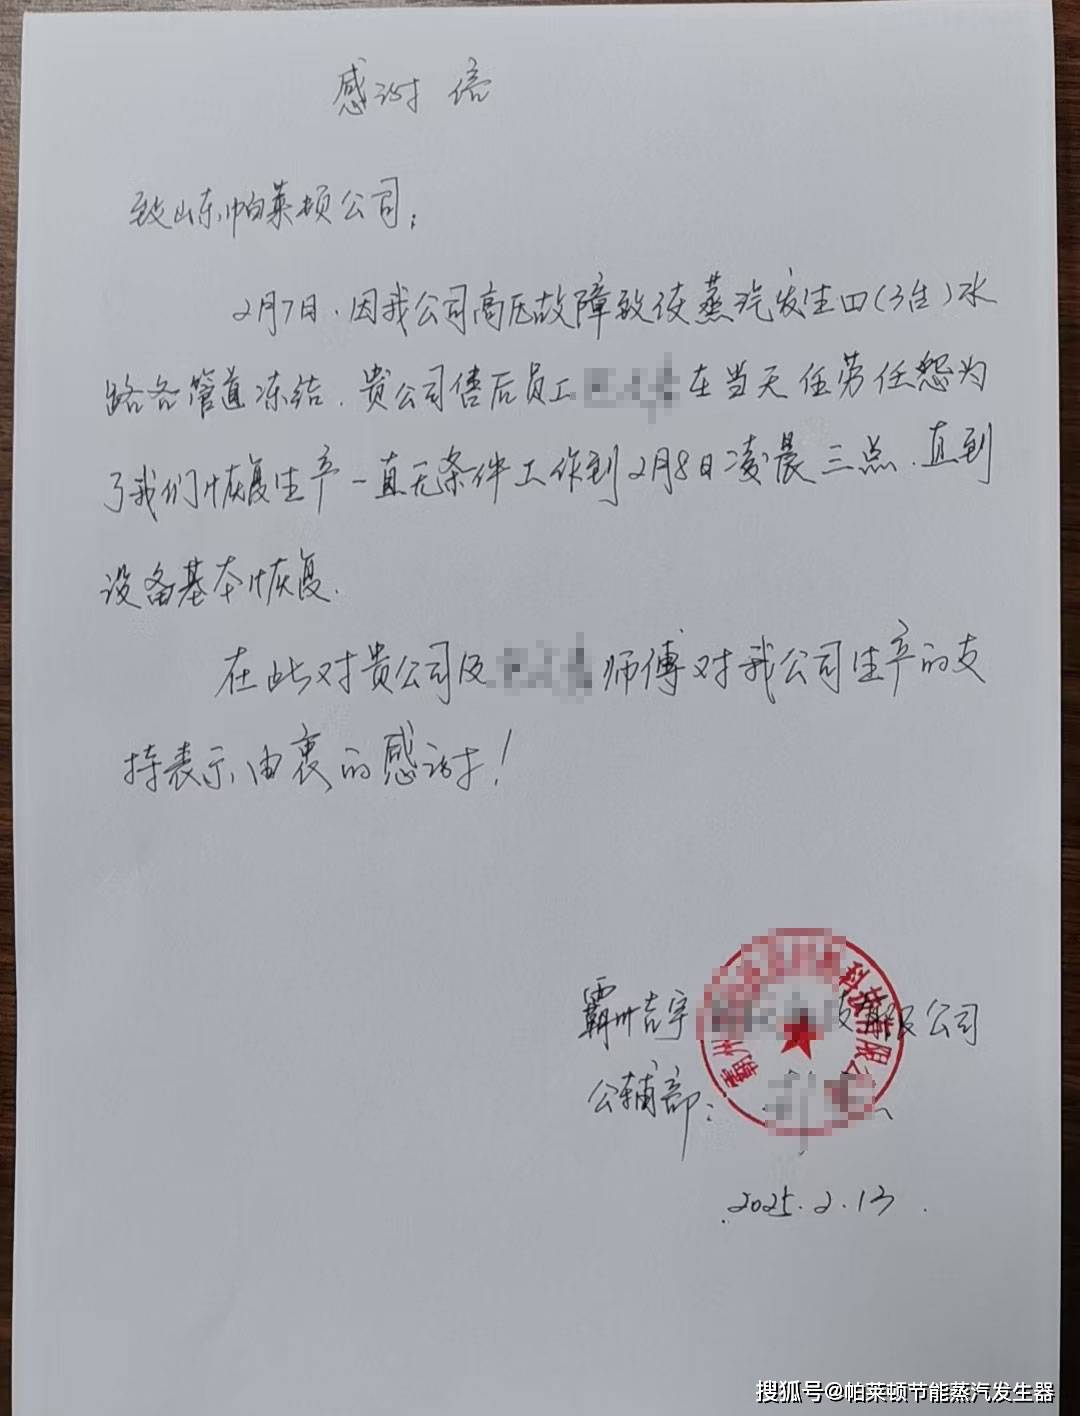 感谢信
致山东帕莱顿公司:
2月7日.因我公司高压故障致使蒸汽发生四(3台)水
路各管道冻结.贵公司售后员工 在当天任劳任怨为
了我们恢复生产一直无条件工作到2月8日凌晨三点.直到
设备基本恢复.
在此对贵公司及 师傅对我公司生产的支
持表示由衷的感谢!
霸州吉宇 技有限公司
公辅部:
霸州 科技有限公
2025.2.13.
搜狐号@帕莱顿节能蒸汽发生器